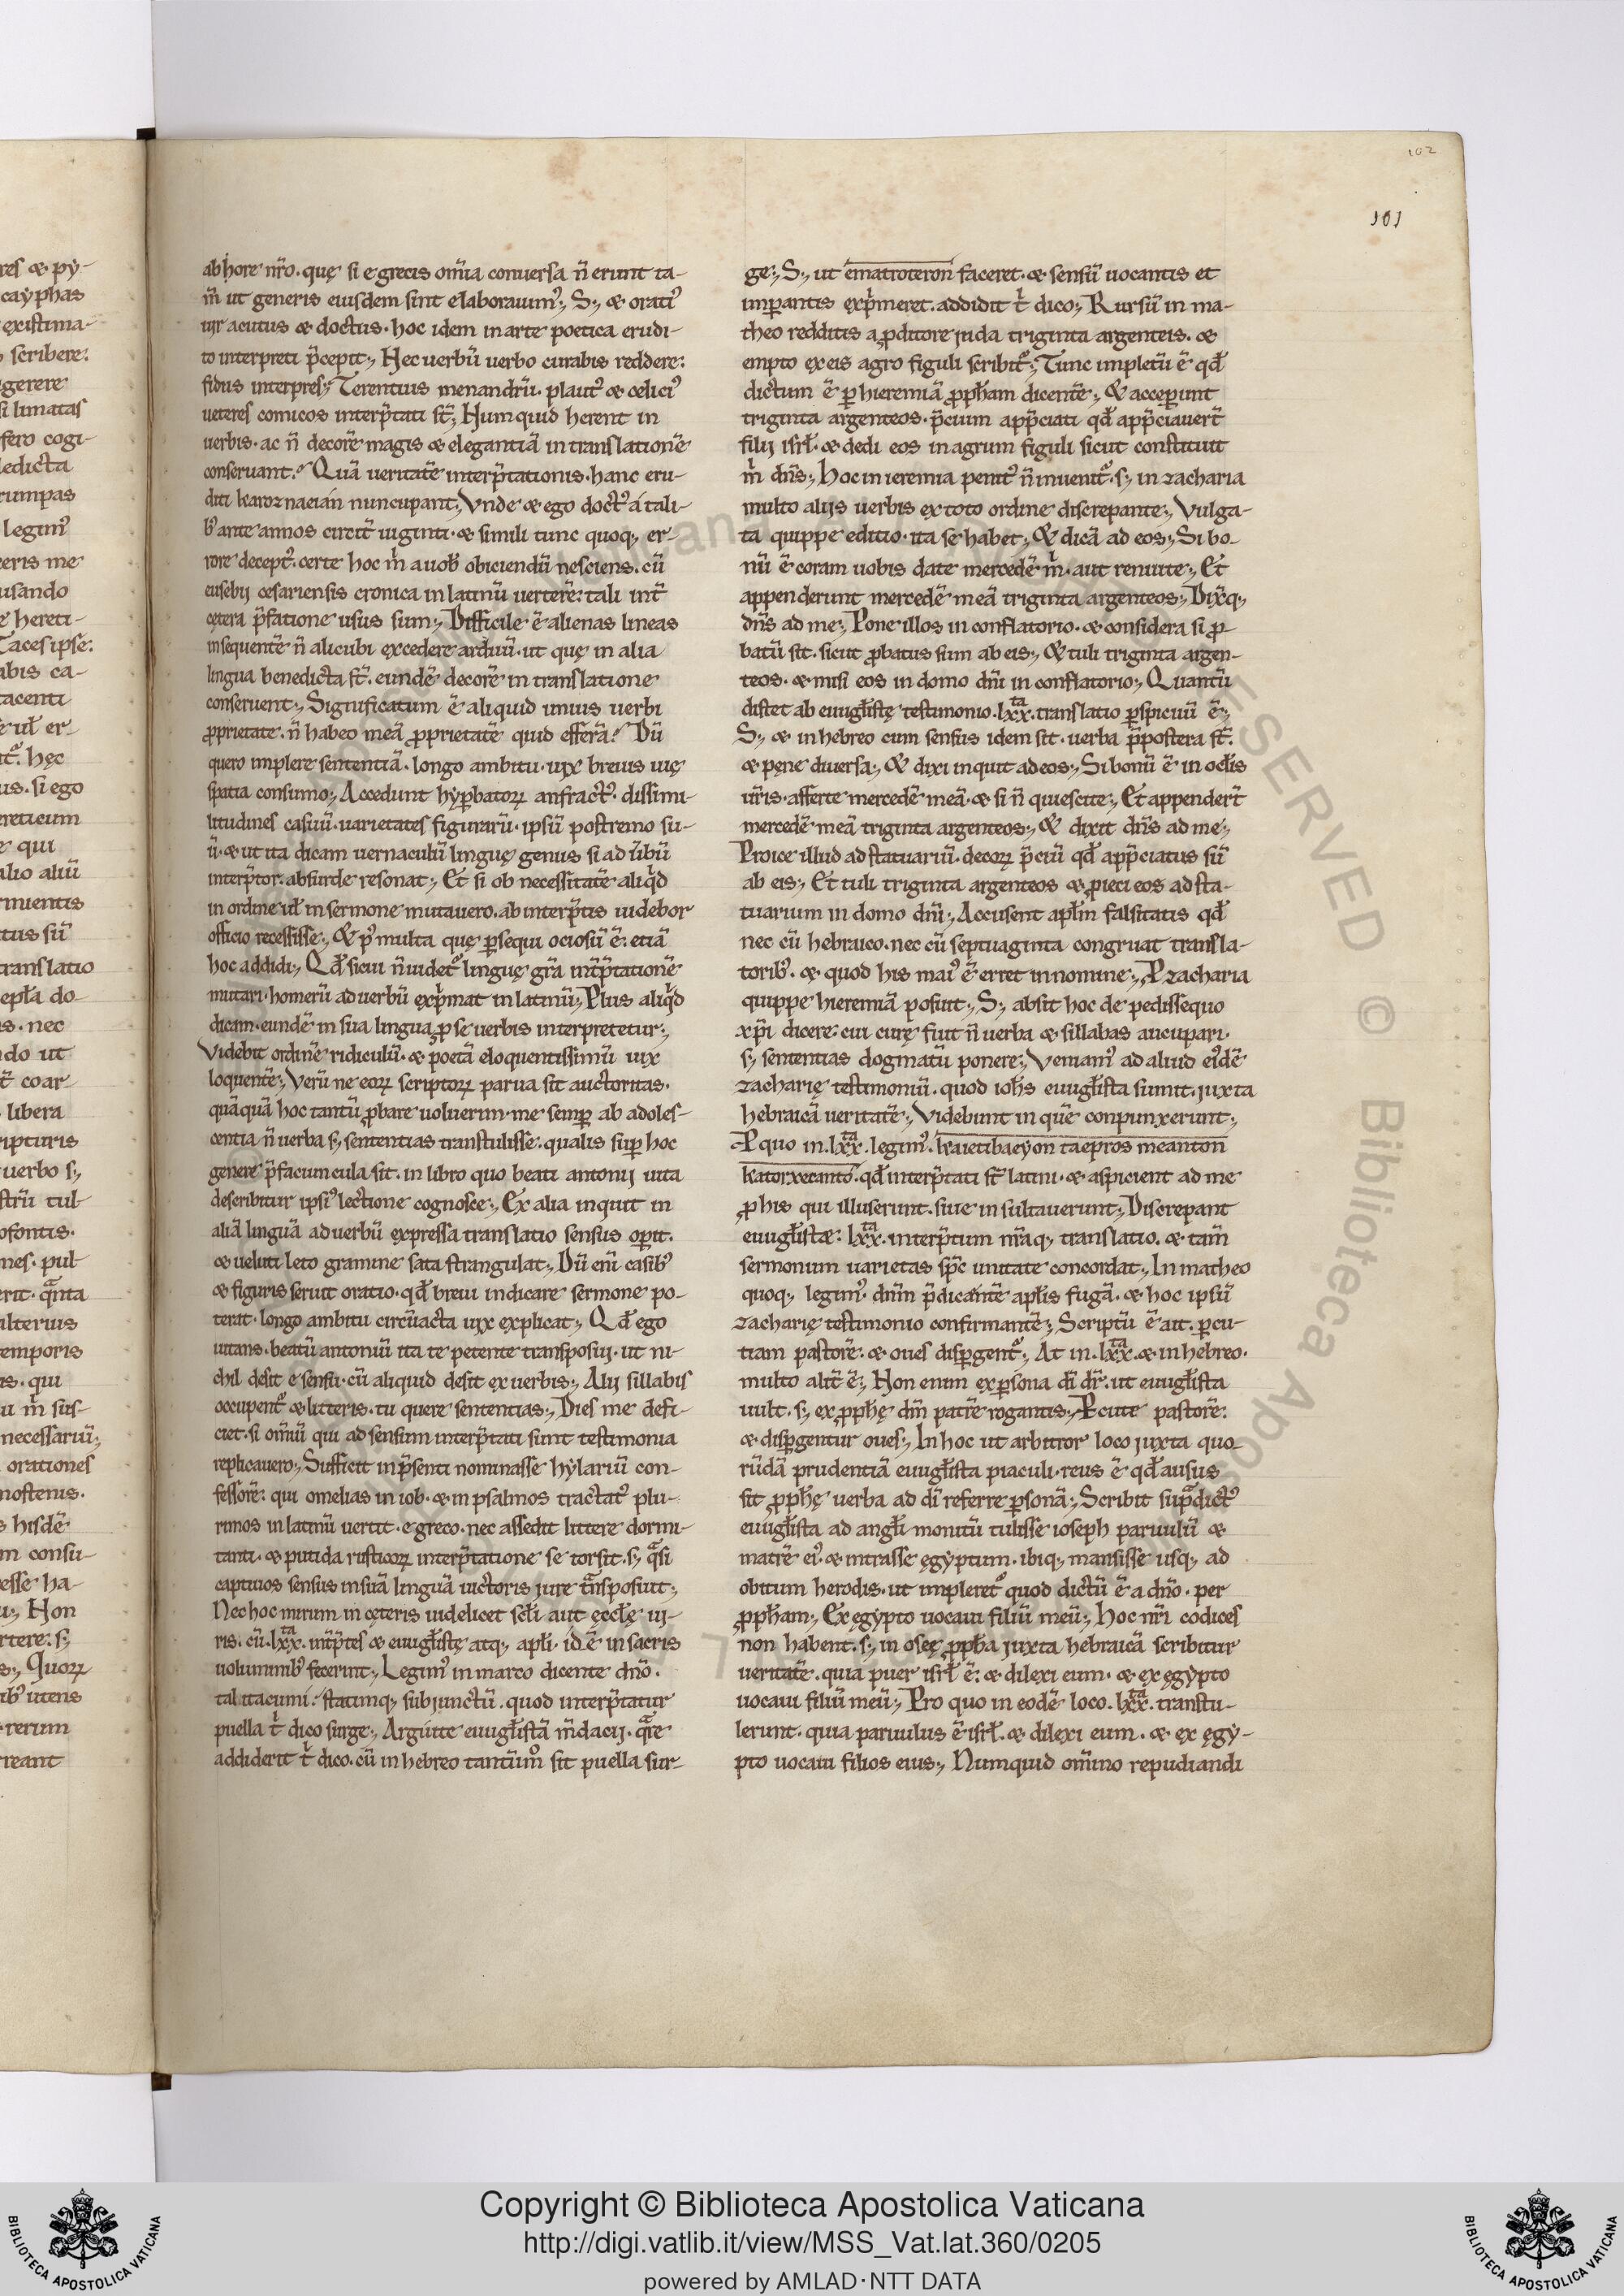 102
101
res & py-
cayphas
existima-
scribere.
gerere
si limatas
sero cogi-
ledicta
rumpas
legim᾿
ceris me
usando
hereti-
Taces ipse.
abis ca-
tacenti
ē ul̄ er-
hęc
us. si ego
ereticum
qui
alio aliū
rmientis
tus sū
translatio
epl̄a do-
s. nec
do ut
coar-
libera
ripturis
uerbo s;
strū tul-
ofontis.
nes. pul-
erit. q̄nta
alterius
temporis
as. qui
u m̄ sus-
necessariū;
orationes
nostenis.
s hisdē
m consu-
esse ha-
u; Non
rtere. s;
s; Quoꝝ
ib᾿ utens
rerum
reant
abhore nr̄o. quę si e grecis om̄ia conuersa n̄ erunt ta-
m̄ ut generis eiusdem sint elaborauim᾿; S; & orati᾿
uir acutus & doctus. hoc idem in arte poetica erudi-
to interpreti p̄cepit; Hec uerbū uerbo curabis reddere.
fidus interpres; Terentius menandrū. plaut᾿ & celici᾿
ueteres comicos interp̄tati st̄; Numquid herent in
uerbis. ac n̄ decorē magis & elegantiā in translationē
conseruant? Quā ueritatē interp̄tationis. hanc eru-
diti karoznaeian nuncupant; Vnde & ego doct᾿ a tali-
b᾿ ante annos circit̄ uiginti. & simili tunc quoq; er-
rore decept᾿. certe hoc m̄ a uob̄ obiciendū nesciens. cū
eusebij cesariensis cronica in latinū uerterē. tali int̄
cętera p̄fatione usus sum; Difficile ē alienas lineas
insequentē n̄ alicubi excedere arduū. ut quę in alia
lingua benedicta st̄. eundē decorē in translatione
conseruent; Significatum ē aliquid unius uerbi
ꝓprietate. n̄ habeo meā ꝓprietatē quid efferā? Dū
quero implere sententiā. longo ambitu. uix breuis uię
spatia consumo; Accedunt hyꝑbatoꝝ anfract᾿. dissimi-
litudines casuū. uarietates figurarū. ipsū postremo su-
ū. & ut ita dicam uernaculū linguę genus si ad ūbū
interp̄tor. absurde resonat; Et si ob necessitatē aliq̄d
in ordine ul̄ in sermone mutauero. ab interp̄tis uidebor
officio recessisse; & p᾿ multa quę ꝑsequi ociosū ē. etiā
hoc addidi; Qd̄ sicui n̄ uidet᾿ linguę gr̄a int̄p̄tationē
mutari. homerū ad uerbū exp̄mat in latinū; Plus aliq̄d
dicam. eundē in sua lingua ꝓse uerbis interpretetur;
Videbit ordinē ridiculū. & poetā eloquentissimū uix
loquentē; Verū ne eoꝝ scriptoꝝ parua sit auctoritas.
quāquā hoc tantū ꝓbare uoluerim. me semꝑ ab adoles-
centia n̄ uerba s; sententias transtulisse. qualis suꝑ hoc
genere p̄facuncula sit. in libro quo beati antonij uita
describitur ipsi᾿ lectione cognosce; Ex alia inquit in
aliā linguā ad uerbū expressa translatio sensus oꝑit.
& ueluti leto gramine sata strangulat; Dū eni᷃ casib᾿
& figuris seruit oratio. qd̄ breui indicare sermone po-
terat. longo ambitu circūacta uix explicat; Qd̄ ego
uitans. beatū antoniū ita te petente transposui. ut ni-
chil desit e sensu. cū aliquid desit ex uerbis; Alij sillabis
occupent᾿ & litteris. tu quere sententias; Dies me defi-
ciet. si om̄iū qui ad sensum interp̄tati sunt testimonia
replicauero; Sufficit in p̄senti nominasse hylariū con-
fessorē. qui omelias in iob. & in psalmos tractat᾿ plu-
rimos in latinū uertit. e greco. nec assedit littere dormi-
tanti. & putida rusticoꝝ interp̄tatione se torsit. s; q̄si
captiuos sensus in suā linguā uictoris jure t̄nsposuit;
Nec hoc mirum in cęteris uidelicet scl̄i aut ęccl̄ę ui-
ris. cū. lxx᷃ta. int̄p̄tes & euugl̄istę atq; apl̄i. id ē in sacris
uoluminib᾿ fecerint; Legim᾿ in marco dicente dn̄o.
talitacumi. statimq; subjunctū. quod interp̄tatur
puella t̄ dico surge; Arguite euugl̄istā m̄dacij. q̄re
addiderit t̄ dico. cū in hebreo tantūm᾿ sit puella sur-
ge; S; ut ematroteron faceret. & sensū uocantis et
imꝑantis exp̄meret. addidit t̄ dico; Rursū in ma-
theo redditis a ꝓditore juda triginta argenteis. &
empto ex eis agro figuli scribit᾿; Tunc impletū ē qd̄
dictum ē ꝑ hieremiā ꝓph̄am dicentē; & acceꝑunt
triginta argenteos. p̄cium app̄ciati qd̄ app̄ciauert̄
filij isrl̄. & dedi eos in agrum figuli sicut constituit
m̄ dn̄s; Hoc in ieremia penit᾿ n̄ inuenit᾿. s; in zacharia
multo alijs uerbis ex toto ordine discrepante; Vulga-
ta quippe editio. ita se habet; & dicā ad eos; Si bo-
nū ē coram uobis date mercedē m̄. aut renuite; Et
appenderunt mercedē meā triginta argenteos; Dixq;
dn̄s ad me; Pone illos in conflatorio. & considera si ꝓ-
batū sit. sicut ꝓbatus sum ab eis; & tuli triginta argen-
teos. & misi eos in domo dn̄i in conflatorio; Quantū
distet ab euugl̄istę testimonio. lxx᷃ta. translatio ꝑspicuū ē;
S; & in hebreo cum sensus idem sit. uerba p̄postera st̄.
& pęne diuersa; & dixi inquit ad eos; Si bonū ē in ocl̄is
ur̄is. afferte mercedē meā. & si n̄ quiescite; Et appendert̄
mercedē meā triginta argenteos; & dixit dn̄s ad me;
Proice illud ad statuariū. decoꝝ p̄ciū qd̄ app̄ciatus sū
ab eis; Et tuli triginta argenteos & ꝓieci eos ad sta-
tuarium in domo dn̄i; Accusent apl̄m falsitatis qd̄
nec cū hebraico. nec cū septuaginta congruat transla-
torib᾿. & quod his mai᾿ ē erret in nomine; P zacharia
quippe hieremiā posuit; S; absit hoc de pedissequo
xp̄i dicere. cui curę fuit n̄ uerba & sillabas aucupari.
s; sententias dogmatū ponere; Veniam᾿ ad aliud ei᾿dē
zacharię testimoniū. quod ioh̄s euugl̄ista sumit. juxta
hebraicā ueritatē; Videbunt in quē conpunxerunt;
P quo in. lxx᷃ta. legim᾿. kaietibaeyon taepros meanton
katorxecanto. qd̄ interp̄tati st̄ latini. & aspicient ad me
ꝓ his qui illuserunt. siue insultauerunt; Discrepant
euugl̄istæ. lxx᷃ta. interp̄tum nr̄aq; translatio. & tam̄
sermonum uarietas sp̄c unitate concordat; In matheo
quoq; legim᾿. dn̄m p̄dicantē apl̄is fugā. & hoc ipsū
zacharię testimonio confirmantē; Scriptū ē ait. ꝑcu-
tiam pastorē. & oues disꝑgent᾿; At in. lxx᷃ta. & in hebreo.
multo alit̄ ē; Non enim ex ꝑsona di᷃ dr̄. ut euugl̄ista
uult. s; ex ꝓph̄ę dm̄ patrē rogantis; Pcute pastorē.
& disꝑgentur oues; In hoc ut arbitror loco juxta quo-
rūdā prudentiā euugl̄ista piaculi. reus ē qd̄ ausus
sit ꝓph̄ę uerba ad di᷃ referre ꝑsonā; Scribit sup̄dict᾿
euugl̄ista ad angl̄i monitū tulisse ioseph paruulū &
matrē ei᾿. & intrasse ęgyptum. ibiq; mansisse usq; ad
obitum herodis. ut impleret᾿ quod dictū ē a dn̄o. per
ꝓph̄am; Ex ęgypto uocaui filiū meū; Hoc nr̄i codices
non habent. s; in oseę ꝓph̄a juxta hebraicā scribitur
ueritatē. quia puer isrl̄ ē. & dilexi eum. & ex ęgypto
uocaui filiū meū; Pro quo in eodē loco. lxx᷃ta. transtu-
lerunt. quia paruulus ē isrl̄. & dilexi eum. & ex ęgy-
pto uocaui filios eius; Numquid om̄ino repudiandi
Copyright © Biblioteca Apostolica Vaticana
http://digi.vatlib.it/view/MSS_Vat.lat.360/0205
powered by AMLAD·NTT DATA
BIBLIOTECA APOSTOLICA VATICANA
BIBLIOTECA APOSTOLICA VATICANA